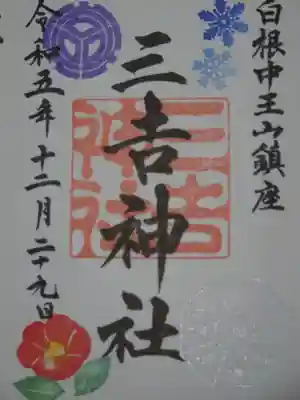 白根中王山鎮座
三吉神社
三吉神社
令和五年十二月二十九日